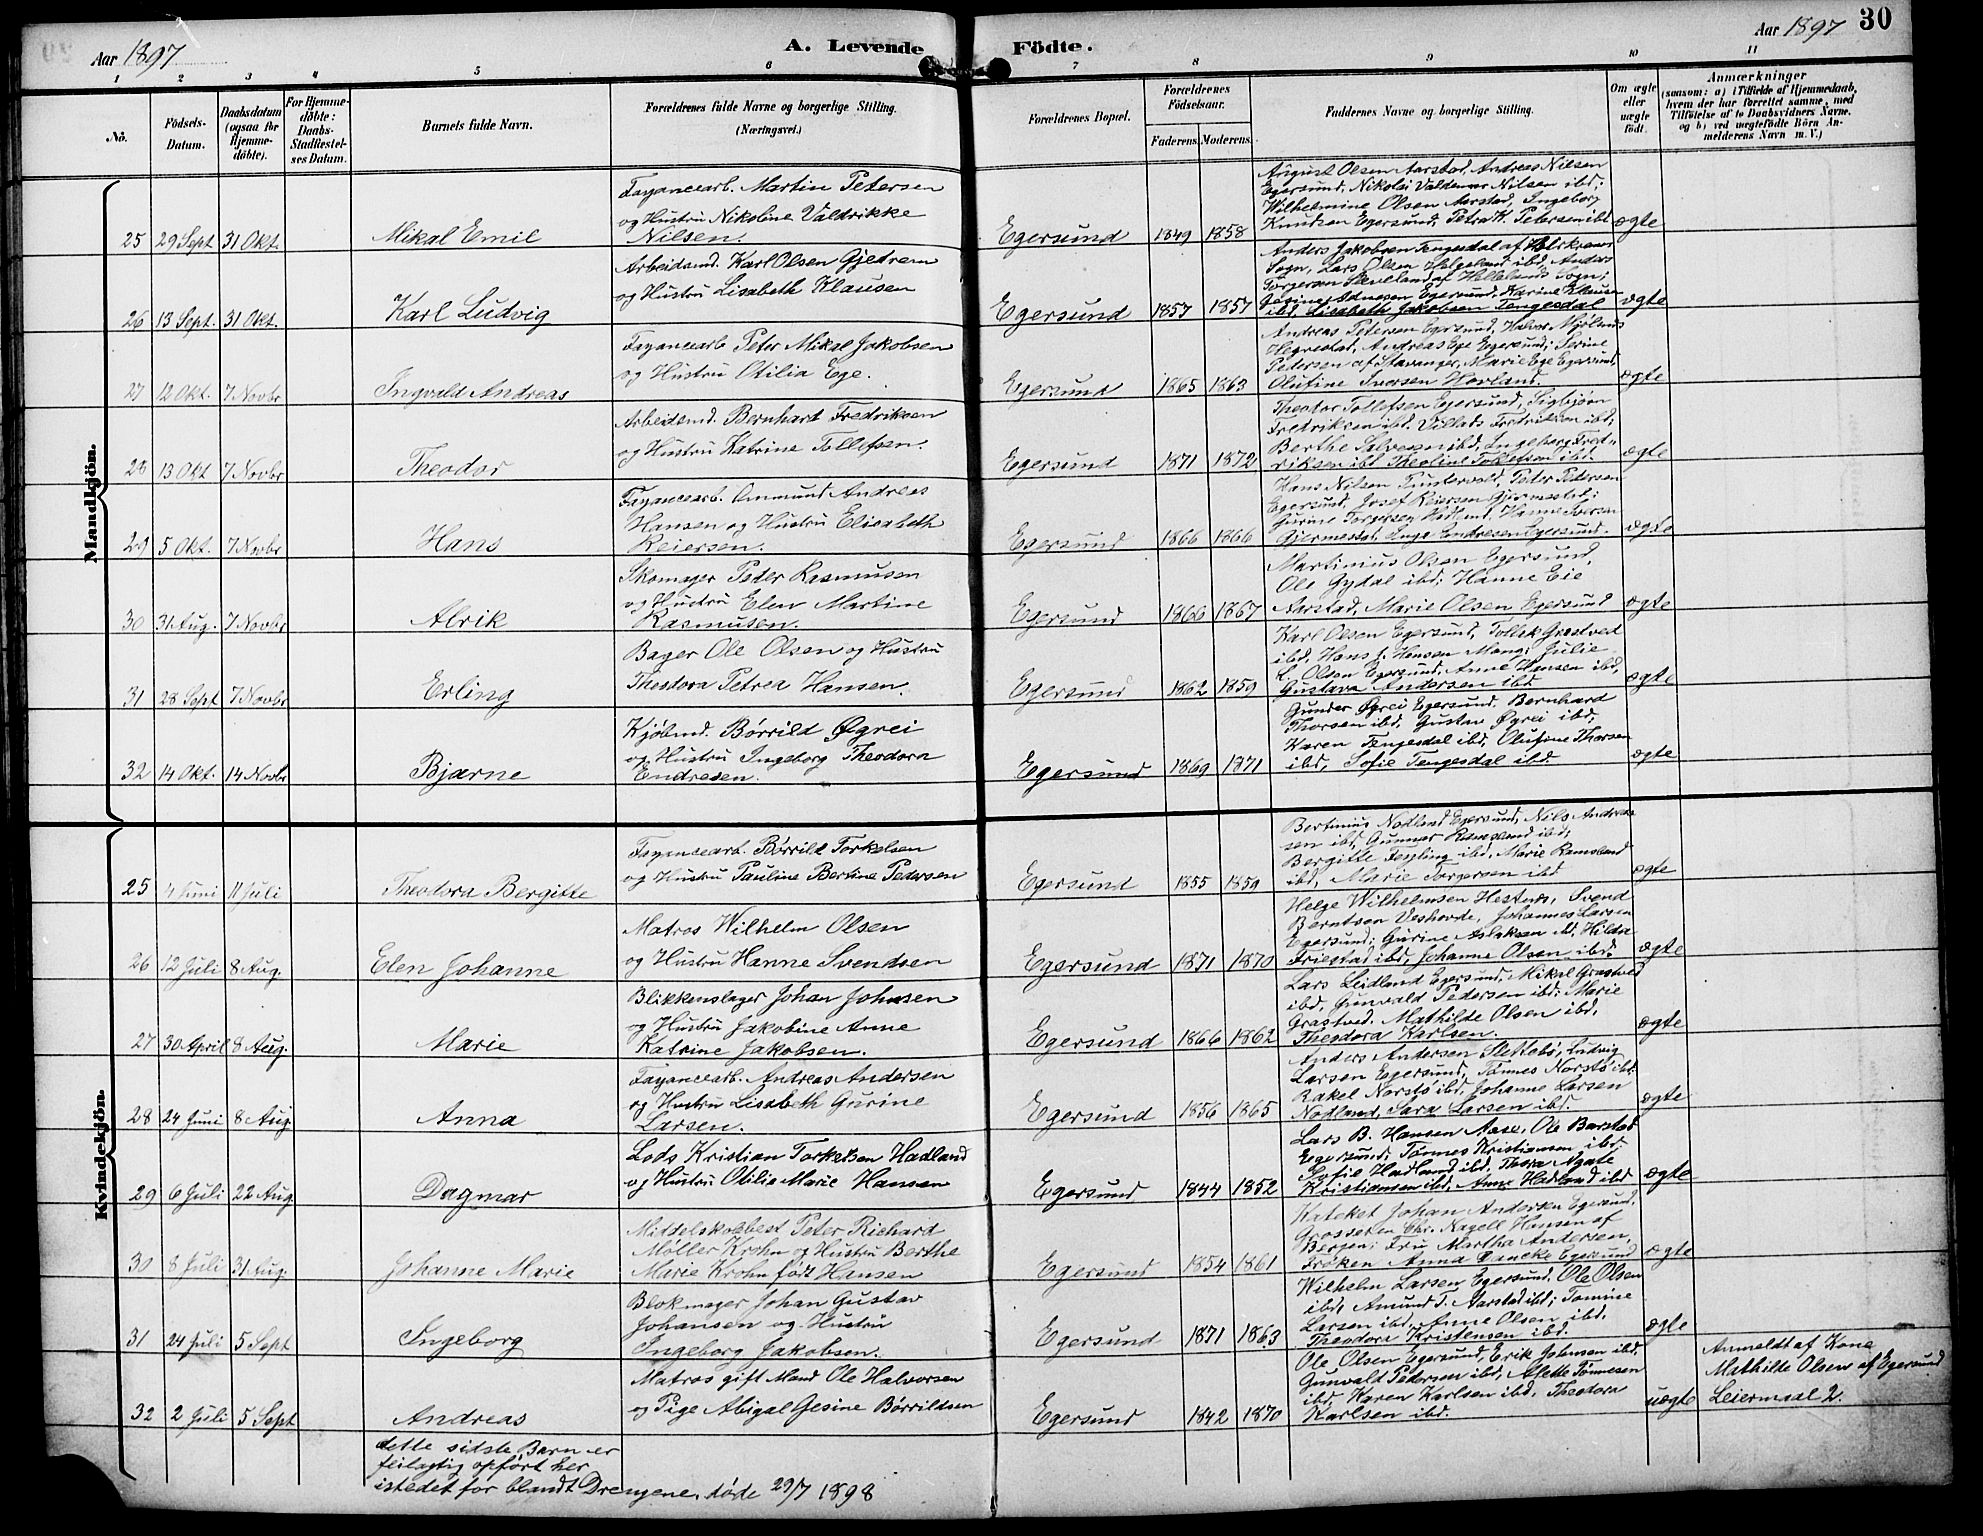 Aar 1897
A. Levende Födte.
Aar 1897 30
1 2 3 4 5 6 7 8 9 10 11
No.
Födsels-Datum.
Daabsdatum (ogsaa for Hjemme-döbte).
For Hjemme-döbte: Daabs-Stadfæstel-ses Datum.
Barnets fulde Navn.
Forældrenes fulde Navne og borgerlige Stilling.
(Næringsvei.)
Forældrenes Bopæl.
Forældrenes Födselsaar.
Faderens. Moderens.
Faddernes Navne og borgerlige Stilling.
Om ægte eller uægte födt.
Anmærkninger
(saasom: a) i Tilfælde af Hjemmedaab,
hvem der har forrettet samme, med
Tilföielse af to Daabsvidners Navne.
og b) ved uægtefödte Börn An-
melderens Navn m. V.)
Mandkjön.
Fayancearb. Martin Petersen
og Hustru Nikoline Valdrikke
25 29 Sept 31 Okt. Mikal Emil Nilsen. Egersund 1849 1858
August Olsen Aarstad, Andreas Nilsen
Egersund, Nikolai Valdemar Nilsen ibd;
Wilhelmine Olsen Aarstad, Ingeborg
Knudsen Egersund, Petra K. Petersen ibd ægte
Arbeidsmd. Karl Olsen Gjedrem
og Hustru Lisabeth Klausen
26 13 Sept. 31 Okt. Karl Ludvig Egersund 1857 1857
Anders Jakobsen Tengesdal af
Sogn, Lars Olsen Helgeland ibd, Anders
Torgersen af Hellelands Sogn;
Egersund, Karine Klausen
ibd, Lisabeth Jakobsen Tengesdal ægte
Fayancearb Peter Mikal Jakobsen
og Hustru Otilia Ege.
27 12 Okt. 7 Novbr Ingvald Andreas Egersund 1865 1863
Andreas Petersen Egersund, Halvor
Hegrestad, Andreas Ege Egersund; Serine
Petersen af Stavanger, Marie Ege Egersund,
Olufine Iversen Hovland. ægte
Arbeidsmd. Bernhard Fredriksen
og Hustru Katrine Tollefsen.
28 13 Okt 7 Novbr Theodor Egersund 1871 1872
Theodor Tollefsen Egersund, Sigbjørn
Fredriksen ibd. Villads Fredriksen ibd,
Berthe Salvesen ibd, Ingeborg Fred-
riksen ibd Theoline Tollefsen ibd. ægte
Fayancearb. Ommund Andreas
Hansen og Hustru Elisabeth
29 5 Okt. 7 Novbr Hans Reiersen. Egersund 1866 1866
Hans Nilsen Puntervold, Peter Petersen
Egersund, Josef Reiersen Gjermestad;
Gurine Torgersen Hadland, Hanne Iversen
Gjermestad, Inga Endresen Egersund. ægte
Skomager Peder Rasmusen
og Hustru Elen Martine
30 31 Aug. 7 Novbr Alrik Rasmusen. Egersund 1866 1867
Martinius Olsen Egersund,
Ole Gydal ibd; Hanne Eie
Aarstad, Marie Olsen Egersund ægte
Bager Ole Olsen og Hustru
Theodora Petrea Hansen.
31 28 Sept 7 Novbr Erling Egersund 1862 1859
Karl Olsen Egersund, Tollak Grastved
ibd, Hans J. Hansen Mong; Julie
L. Olsen Egersund, Anne Hansen ibd,
Gustava Andersen ibd ægte
Kjøbmd. Børrild Øgrei
og Hustru Ingeborg Theodora
32 14 Okt. 14 Novbr Bjarne Endresen. Egersund 1869 1871
Gunder Øgrei Egersund, Bernhard
Thorsen ibd, Gustav Øgrei ibd,
Karen Tengesdal ibd, Olufine Thorsen
ibd, Sofie Tengesdal ibd ægte
Kvindekjön.
Fayancearb. Børrild Torkelsen
og Hustru Pauline Bertine Pedersen
25 4 Juni 11 Juli Theodora Bergitte Egersund 1855 1859
Bertinius Nodland Egersund, Nils Andrea-
sen ibd, Gunnar Ramsland ibd;
Bergitte Tengling ibd, Marie Ramsland
ibd, Marie Torgersen ibd ægte
Matros Wilhelm Olsen
og Hustru Hanne Svendsen
26 12 Juli 8 Aug. Elen Johanne Egersund 1871 1870
Helge Wilhelmsen Hestnes, Svend
Berntsen Veshovde, Johannes Larsen
Egersund; Gurine Aslaksen ibd, Hilda
Friestad ibd, Johanne Olsen ibd. ægte
Blikkenslager Johan Johnsen
og Hustru Jakobine Anne
27 30 April 8 Aug. Marie Katrine Jakobsen. Egersund 1866 1862
Lars Leidland Egersund, Mikal Grastved
ibd, Gunvald Pedersen ibd; Marie
Grastved, Mathilde Olsen ibd,
Theodora Karlsen. ægte
Fayancearb. Andreas Andersen
og Hustru Lisabeth Gurine
28 24 Juni 8 Aug. Anna Larsen. Egersund 1856 1865
Anders Andersen Slettebö, Ludvig
Larsen Egersund, Tønnes Norstö ibd
Rakel Norstö ibd, Johanne Larsen
Nodland, Sara Larsen ibd. ægte
Lods Kristian Torkelsen Hadland
og Hustru Otilie Marie Hansen
29 6 Juli 22 Aug. Dagmar Egersund 1844 1852
Lars B. Hansen Aase, Ole Barstad
Egersund, Tønnes Kristiansen ibd,
Sofie Hadland ibd, Thora Agate
Kristiansen ibd, Anne Hadland ibd ægte
Middelskolebest Peter Richard
Møller Krohn og Hustru Berthe
30 8 Juli 31 Aug. Johanne Marie Marie Krohn født Hansen Egersund 1854 1861
Kateket Johan Andersen Egersund,
Grosserer Chr. Nagell Hansen af
Bergen; Fru Martha Andersen,
Frøken Anna Dancke Egersund ægte
Blokmager Johan Gustav
Johansen og Hustru
31 24 Juli 5 Sept Ingeborg Ingeborg Jakobsen. Egersund 1871 1863
Wilhelm Larsen Egersund, Ole Olsen
ibd, Amund T. Aarstad ibd; Tomine
Larsen ibd, Anne Olsen ibd.
Theodora Kristensen ibd. ægte
Matros gift Mand Ole Halvorsen
og Pige Abigal Gesine Børrildsen
32 2 Juli 5 Sept Andreas Egersund 1842 1870
Ole Olsen Egersund, Erik Johnsen ibd.
Gunvald Pedersen ibd; Alette Tønnesen
ibd, Karen Karlsen ibd. Theodora
Karlsen ibd. uægte
Anmeldt af Kone
Mathilde Olsen af Egersund
Leiermaal 2.
dette sidste Barn er
feilagtig opført her
istedet for blandt Drengene, døde 29/7 1898